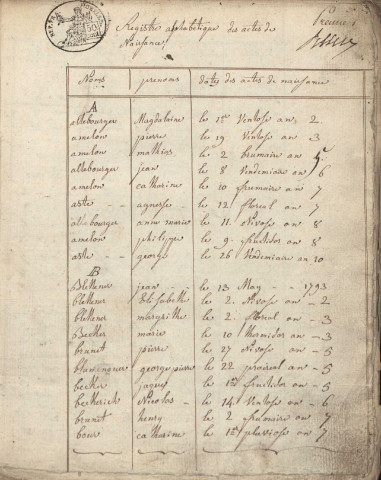 Registre alphabetique des actes de
Naissance
Premier
Noms prenoms dates des actes de naissance
A
allebourger Magdelaine le 1er Ventose an 2
amelon pierre le 19 Ventose an 3
amelon mathias le 2 brumaire an 5
allebourger jean le 8 Vendemiaire an 6
amelon catharine le 10 frumaire an 7
aste agnesse le 12 floreal an 7
allebourger anne marie le 11 Nivose an 8
amelon philippe le 9 fructidor an 8
aste george le 26 Vendemiaire an 10
B
Blettener jean le 13 May 1793
blettener Elisabethe le 2 Nivose an 2
blettener margrithe le 2 floreal an 3
Becker marie le 10 thermidor an 3
brunit pierre le 27 Nivose an 5
blumenguer george pierre le 22 prairial an 5
becker jaque le 1er fructidor an 5
becherich Nicolas le 14 Ventose an 6
brunit henry le 2 frumaire an 7
bour catharine le 1er pluviose an 7